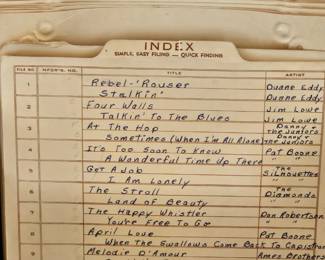 INDEX
SIMPLE, EASY FILING — QUICK FINDING
FILE NO. MFGR'S. NO. TITLE ARTIST
1 Rebel-'Rouser Duane Eddy
Stalkin' Duane Eddy
2 Four Walls Jim Lowe
Talkin' To The Blues Jim Lowe
3 At The Hop Danny & the Juniors
Sometimes (When I'm All Alone) Danny & the Juniors
4 It's Too Soon To Know Pat Boone
A Wonderful Time Up There " "
5 Get A Job The Silhouettes
I Am Lonely " "
6 The Stroll The Diamonds
Land of Beauty " "
7 The Happy Whistler Don Robertson
You're Free To Go " "
8 April Love Pat Boone
When The Swallows Come Back To Capistrano
9 Melodie D'Amour Ames Brothers